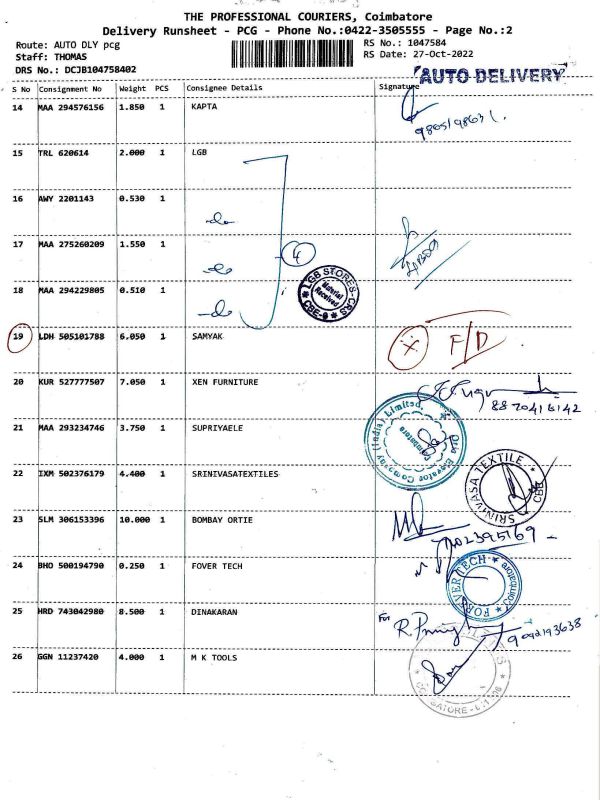 THE PROFESSIONAL COURIERS, Coimbatore
Delivery Runsheet - PCG - Phone No.:0422-3505555 - Page No.:2
Route: AUTO DLY pcg
Staff: THOMAS
DRS No.: DCJB104758402
RS No.: 1047584
RS Date: 27-Oct-2022
AUTO DELIVERY
S No Consignment No Weight PCS Consignee Details Signature
14 MAA 294576156 1.850 1 KAPTA
15 TRL 620614 2.000 1 LGB
16 AWY 2201143 0.530 1 do
17 MAA 275260209 1.550 1 do
4
18 MAA 294229805 0.510 1 do
LGB STORES-CRS
Material Received
CBE-9
19 LDH 505101788 6.050 1 SAMYAK X F/D
20 KUR 527777507 7.050 1 XEN FURNITURE
21 MAA 293234746 3.750 1 SUPRIYAELE
Elevator Company (India) Limited.
Coimbatore
22 IXM 502376179 4.400 1 SRINIVASATEXTILES
SRINIVASA TEXTILE
CBE
23 SLM 306153396 10.000 1 BOMBAY ORTIE
24 BHO 500194790 0.250 1 FOVER TECH
FOREVER TECH
Coimbatore
25 HRD 743042980 8.500 1 DINAKARAN For
9092193638
26 GGN 11237420 4.000 1 M K TOOLS